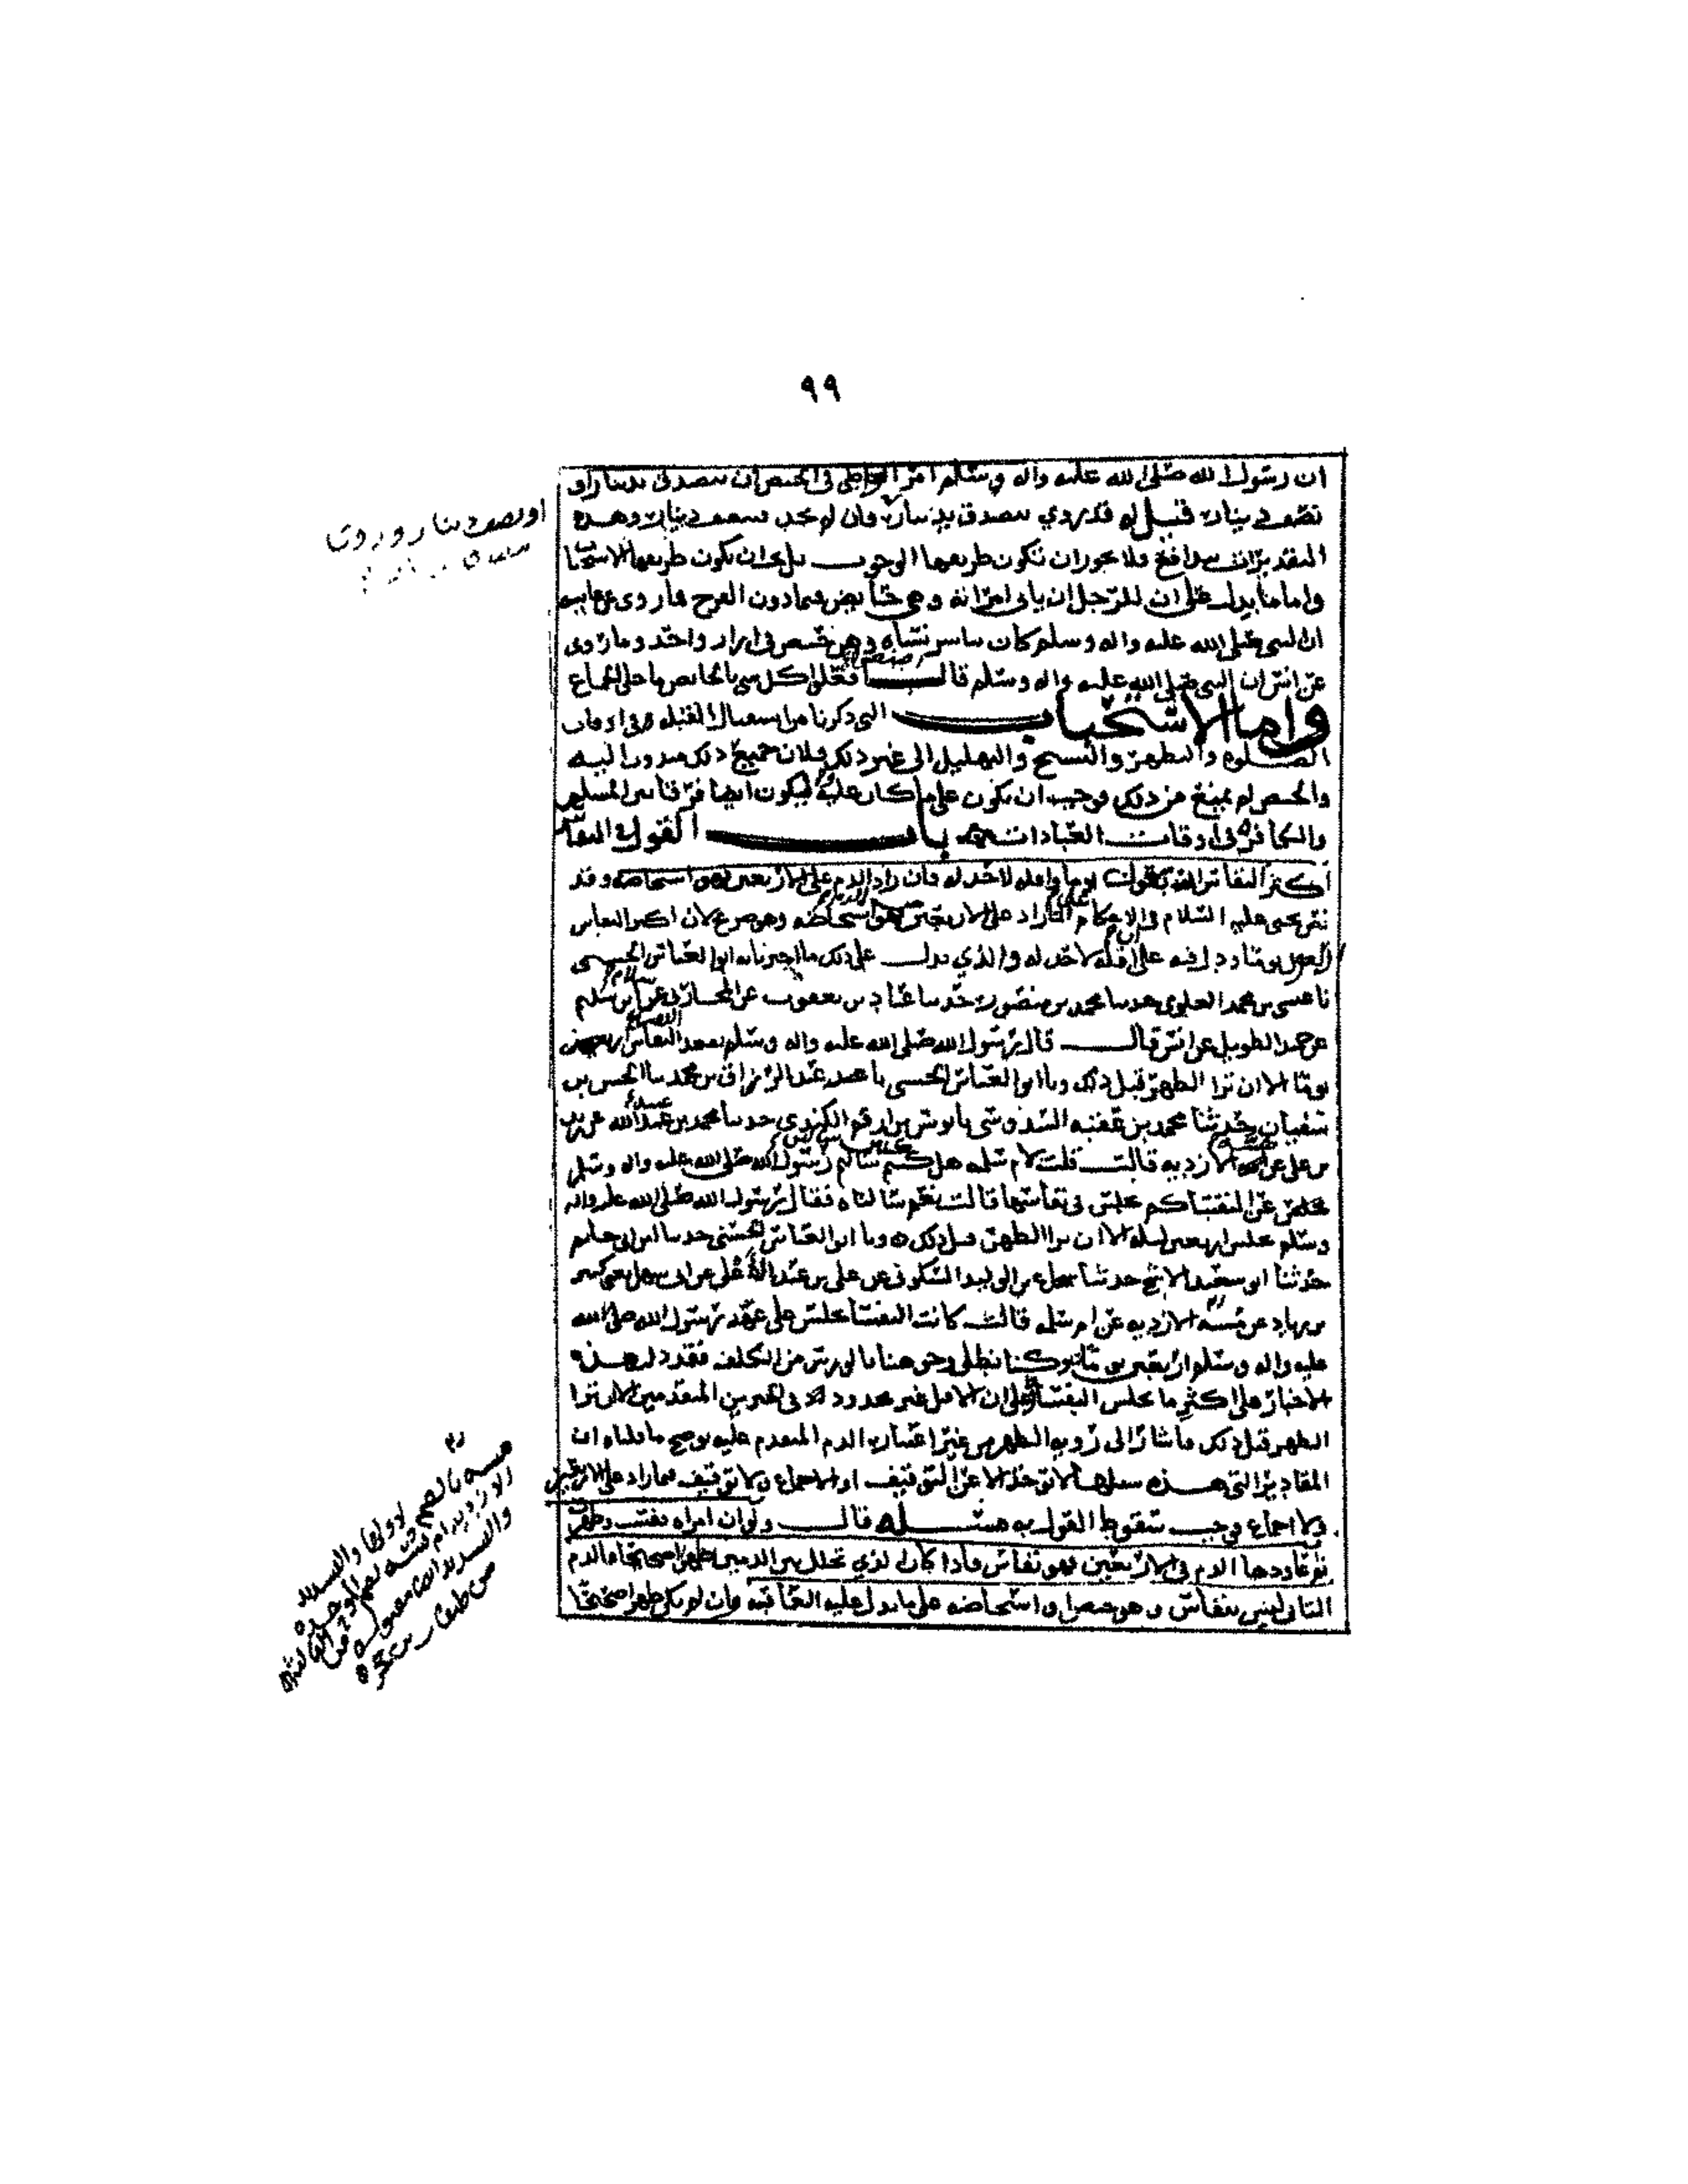 ٩٩
ان رسول الله صلى الله عليه واله وسلم امر الواطى في الحيض ان يتصدق بدينار او
نصف دينار قيل له قد روي يتصدق بدينار فان لم يجد فنصف دينار وهذه
التقديرات تتدافع ولا يجوز ان تكون طريقها الوجوب بل يجب ان يكون طريقها الاستحباب
واما ما يدل على ان للرجل ان ياتي امراته وهي حائض فيما دون الفرج فما روى عن عايشه
ان النبي صلى الله عليه واله وسلم كان يباشر نساه وهن حيض في ازار واحد وما روى
عن انس ان النبي صلى الله عليه واله وسلم قال افعلوا كل شي بالحايض ما خلا الجماع
واما الاستحباب التي ذكرنا من استقبال القبله في اوقات
الصلوه والتطهر والتسبيح والتهليل الى غير ذلك فلان جميع ذلك مندوب اليه
والحيض لم يمنع من ذلك فوجب ان يكون على ما كان عليه ليكون ايضا فرقا بين المسلمه
والكافره في اوقات العبادات باب القول في النفاس
اكثر النفاس اربعون يوما واقله لا حد له فان زاد الدم على الاربعين فهو استحاضه وقد
نص يحيى عليه السلام في الاحكام على ان ما زاد على الاربعين فهو استحاضه وهو صريح لان اكثر النفاس
اربعون يوما ودل فيه على ان اقله لا حد له والذي يدل على ذلك ما اخبرنا به ابو العباس الحسني
نا عيسى بن محمد العلوي حدثنا محمد بن منصور حدثنا عباد بن يعقوب عن المحاربي عن سلام بن سليم
عن حميد الطويل عن انس قال قال رسول الله صلى الله عليه واله وسلم تقعد النفساء اربعين
يوما الا ان ترا الطهر قبل ذلك ونا ابو العباس الحسني نا عبد الرزاق بن محمد نا الحسن بن
سفيان حدثنا محمد بن عقبه السدوسي نا يونس بن ارقم الكندي حدثنا محمد بن عبيد الله عن زيد
بن علي عن مسه الازديه قالت قلت لام سلمه هل كنتم سالتم رسول الله صلى الله عليه واله وسلم
عن النفساء كم تجلس في نفاسها قالت نعم سالناه فقال رسول الله صلى الله عليه واله
وسلم تجلس اربعين ليله الا ان ترا الطهر قبل ذلك ونا ابو العباس الحسني حدثنا ابن ابي حاتم
حدثنا ابو سعيد الاشج حدثنا شجاع بن الوليد السكوني عن علي بن عبد الاعلى عن ابي سهل يعني كثير
بن زياد عن مسه الازديه عن ام سلمه قالت كانت النفساء تجلس على عهد رسول الله صلى الله
عليه واله وسلم اربعين يوما وكنا نطلي وجوهنا بالورس من الكلف فقد دلت هذه
الاخبار على اكثر ما تجلس النفساء وعلى ان الاقل غير محدود لان في الخبرين المتقدمين الا ان ترا
الطهر قبل ذلك فاشار الى رويه الطهر من غير اعتبار الدم المتقدم عليه يوضح ما قلناه ان
المقادير التي هذه سبيلها لا توخذ الا عن التوقيف او الاجماع ولا توقيف فيما زاد على الاربعين
ولا اجماع فوجب سقوط القول به مسئله قال ولو ان امراه نفست وطهرت
ثم عاودها الدم في الاربعين فهو نفاس فاذا كان الذي تخلل بين الدمين طهرا صحيحا فالدم
الثاني ليس بنفاس وهو حيض او استحاضه على ما يدل عليه العاقبه وان لم يكن طهرا صحيحا
او نصف دينار وروي
مسه بالضم لاولها والتشديد
الازديه ام بسه